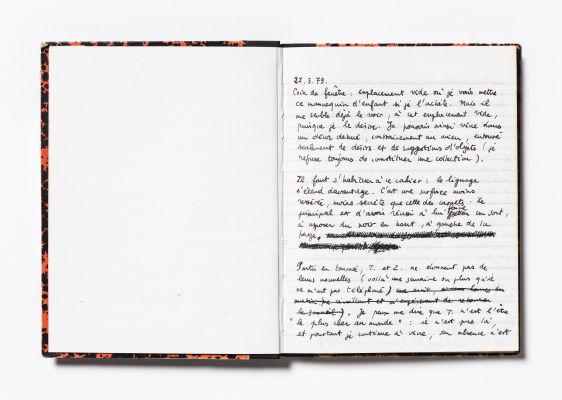 27.3.79.
Coin de fenêtre : emplacement vide où je vais mettre
ce mannequin d'enfant si je l'achète. Mais il
me semble déjà le voir, à cet emplacement vide,
puisque je le désire. Je pourrais ainsi vivre dans
un décor dénué, contrairement au mien, entouré
seulement de désirs et de suggestions d'objets (je
refuse toujours de constituer une collection).
Il faut s'habituer à ce cahier : le lignage
s'étend davantage. C'est une surface moins
resserrée, moins secrète que celle des carnets. Le
principal est d'avoir réussi à lui faire un sort,
à apposer du noir en haut, à gauche de la
page,
Partis en tournée, T. et Z. ne donnent pas de
leurs nouvelles (voilà une semaine ou plus qu'il
ne m'ont pas téléphoné)
). Je peux me dire que T. n'est l'être
"le plus cher du monde" : il n'est pas là,
et pourtant je continue à vivre, son absence n'est